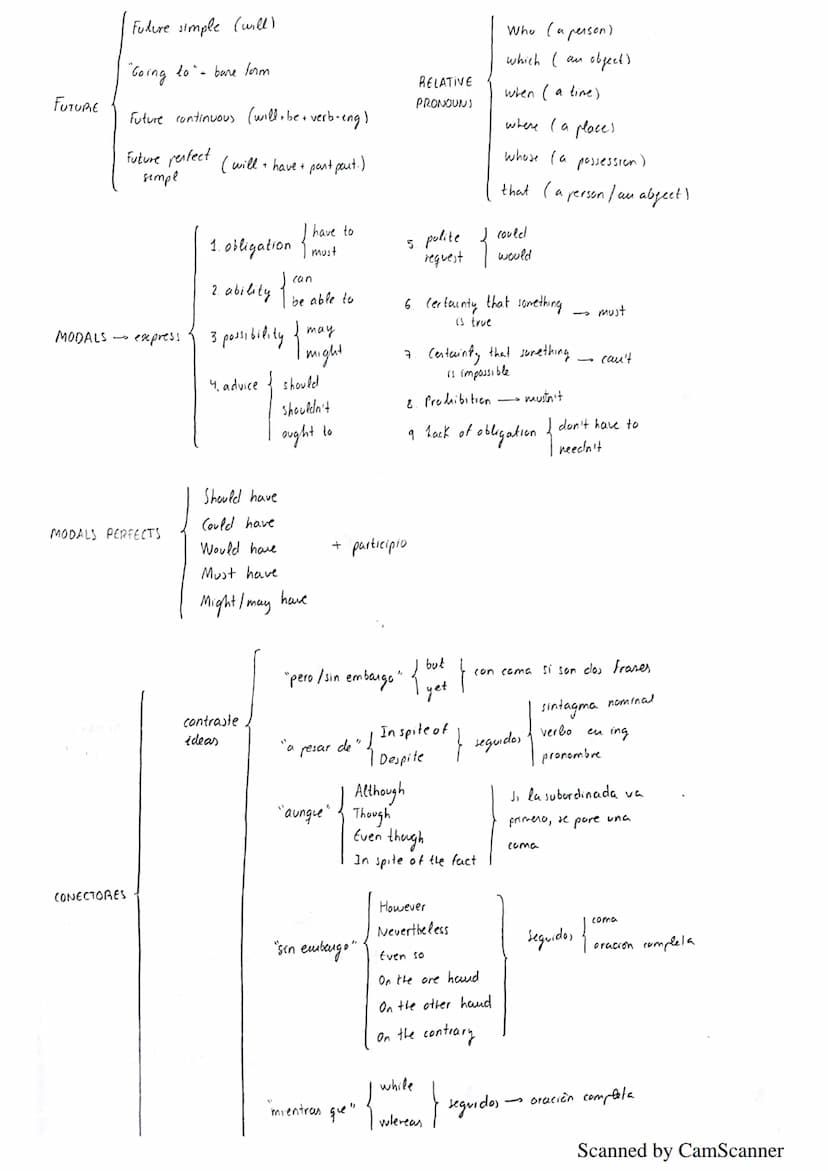 FUTURE
Future simple (will)
"Going to" - bare form
Future continuous (will+be+verb-ing)
Future perfect (will + have + past part.)
simpl
RELATIVE
PRONOUNS
Who (a person)
which ( an object)
when ( a time)
where (a place)
whose (a possession)
that (a person/an object)
MODALS → express
1. obligation
have to
must
2. ability
can
be able to
3 possibility
may
might
4. advice
should
shouldn't
ought to
5 polite
request
could
would
6 Certainty that something
is true
→ must
7 Certainty that something
is impossible
→ can't
8. Prohibition → mustn't
9 Lack of obligation
don't have to
needn't
MODALS PERFECTS
Should have
Could have
Would have
Must have
Might/may have
+ participio
CONECTORES
contraste
ideas
"pero/sin embargo"
but
yet
con coma si son dos frases
"a pesar de"
In spite of
Despite
seguidos
sintagma nominal
verbo en ing
pronombre
"aunque"
Although
Though
Even though
In spite of the fact
Si la subordinada va
primero, se pone una
coma
"sin embargo"
However
Nevertheless
Even so
On the one hand
On the other hand
On the contrary
seguidos
coma
oración completa
"mientras que"
while
whereas
seguidos → oración completa
Scanned by CamScanner